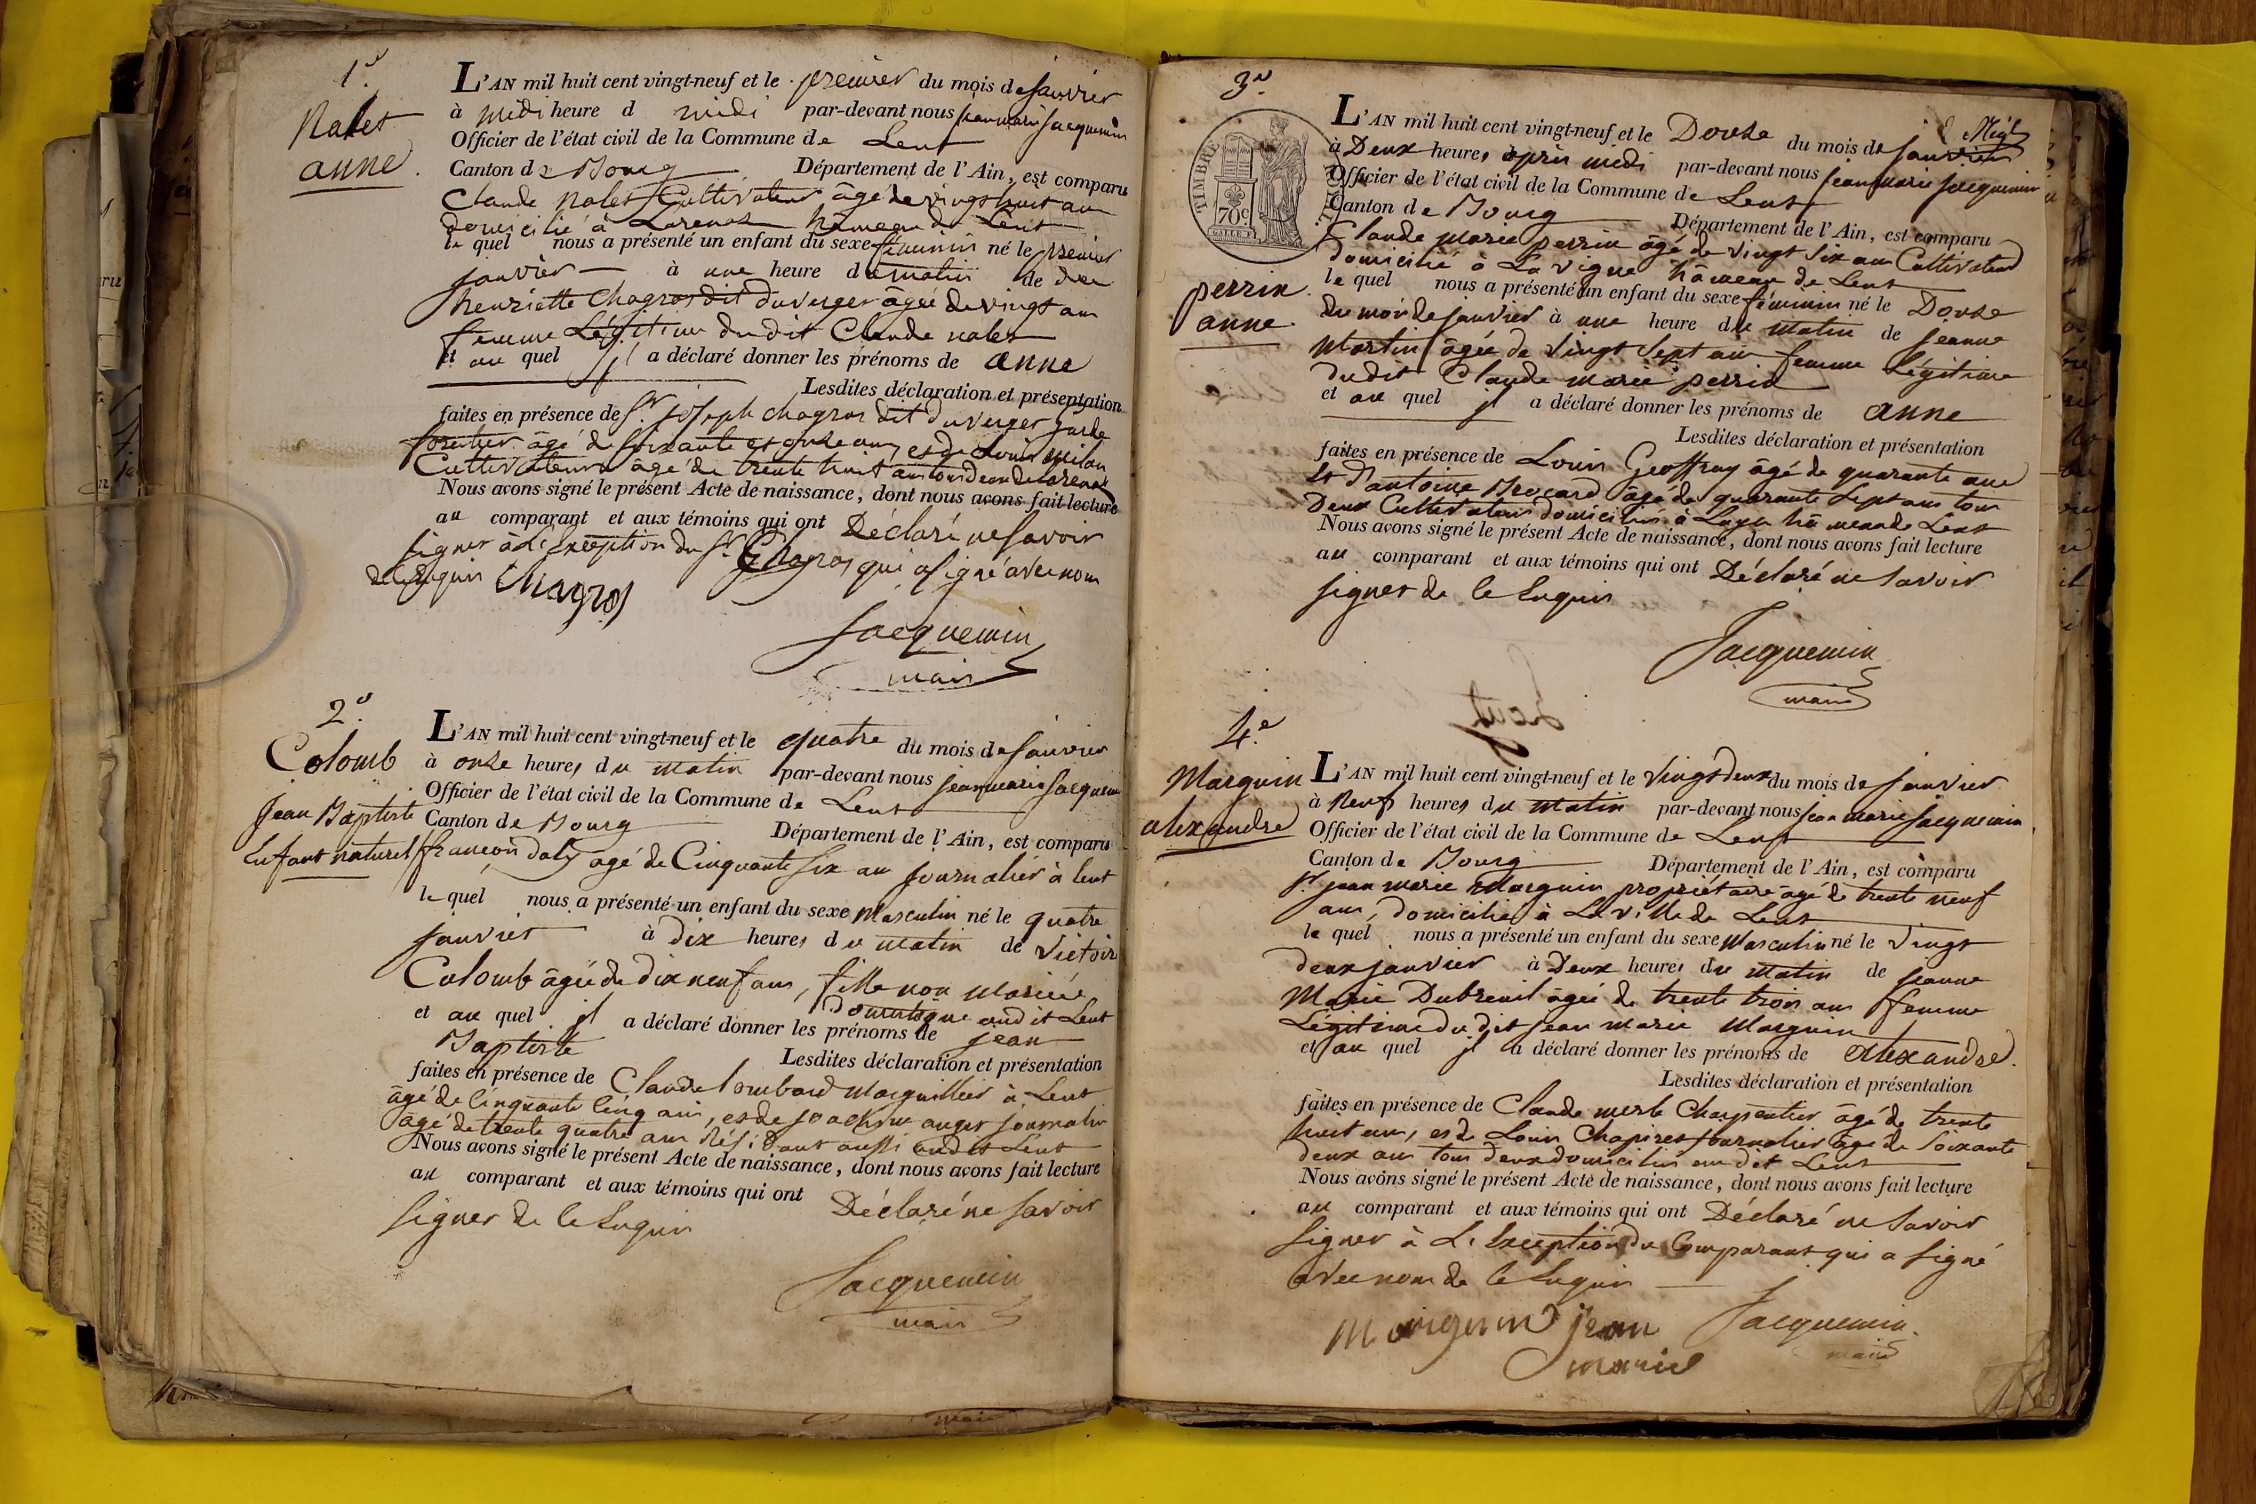 1.e
Nalet
anne
L'AN mil huit cent vingt-neuf et le premier du mois de janvier
à midi heure d midi par-devant nous jean marie jacquemin
Officier de l'état civil de la Commune de Lent
Canton de Bourg Département de l'Ain, est comparu
Claude Nalet Cultivateur âgé de vingt huit an
domicilié à Lozenas hâmeau de Lent
le quel nous a présenté un enfant du sexe féminin né le premier
janvier à une heure du matin de
henriette Chagros dit duverger âgée de vingt an
femme Légitime du dit Claude nalet
et au quel jl a déclaré donner les prénoms de anne
Lesdites déclaration et présentation
faites en présence de Sr. joseph chagros dit duverger garde
forestier âgé de soixante et onze ans, et de Louis milan
Cultivateur âgé de trente huit ans tous deux de
Nous avons signé le présent Acte de naissance, dont nous avons fait lecture
au comparant et aux témoins qui ont Déclaré ne savoir
signer à L'exception du Sr. Chagros qui a signé avec nous
de le Enquis Chagros
jacquemin
maire
2.e
Colomb
Jean Baptiste
Enfant naturel
L'AN mil huit cent vingt-neuf et le quatre du mois de janvier
à onze heures du matin par-devant nous jean marie jacquemin
Officier de l'état civil de la Commune de Lent
Canton de Bourg Département de l'Ain, est comparu
françois daly agé de Cinquante six an journalier à lent
le quel nous a présenté un enfant du sexe Masculin né le quatre
janvier à dix heures du matin de Victoir
Colomb âgée de dix neuf ans, fille non mariée
Domestique audit Lent
et au quel jl a déclaré donner les prénoms de jean
Baptiste
Lesdites déclaration et présentation
faites en présence de Claude lombard Marguillier à Lent
âgé de Cinquante Cinq ans, et de joachim auger journalier
âgé de trente quatre ans Résidant aussi audit Lent
Nous avons signé le présent Acte de naissance, dont nous avons fait lecture
au comparant et aux témoins qui ont Déclaré ne savoir
signer de le Enquis
Jacquemin
maire
3.e
TIMBRE
70c
perrin
anne
L'AN mil huit cent vingt-neuf et le Douze du mois de janvier
à Deux heures après midi par-devant nous jean marie jacquemin
Officier de l'état civil de la Commune de Lent
Canton de Bourg Département de l'Ain, est comparu
Claude marie perrin âgé de vingt six an Cultivateur
domicilié à La vigne hâmeau de Lent
le quel nous a présenté un enfant du sexe féminin né le Douze
du mois de janvier à une heure du matin de jeanne
Martin âgée de vingt sept ans femme Légitime
dudit Claude marie perrin
et au quel jl a déclaré donner les prénoms de anne
Lesdites déclaration et présentation
faites en présence de Louis Geoffray âgé de quarante ans
et d'antoine Brocard âgé de quarante sept ans tous
Deux Cultivateurs domiciliés à hâmeau de Lent
Nous avons signé le présent Acte de naissance, dont nous avons fait lecture
au comparant et aux témoins qui ont Déclaré ne savoir
signer de le Enquis
Jacquemin
maire
4.e
Marguin
alexandre
L'AN mil huit cent vingt-neuf et le vingt deux du mois de janvier
à Neuf heures du matin par-devant nous jean marie jacquemin
Officier de l'état civil de la Commune de Lent
Canton de Bourg Département de l'Ain, est comparu
Sr. jean marie Marguin propriétaire âgé de trente neuf
ans, domicilié à La ville de Lent
le quel nous a présenté un enfant du sexe Masculin né le vingt
deux janvier à Deux heures du matin de jeanne
Marie Dubreuil âgée de trente trois ans femme
Légitime du dit jean marie Marguin
et au quel jl a déclaré donner les prénoms de alexandre
Lesdites déclaration et présentation
faites en présence de Claude merle Charpentier âgé de trente
huit ans, et de Louis Chapiret journalier âgé de soixante
deux ans tous deux domiciliés au dit Lent
Nous avons signé le présent Acte de naissance, dont nous avons fait lecture
au comparant et aux témoins qui ont Déclaré ne savoir
signer à L'exception du Comparant qui a signé
avec nous de le Enquis
Marguin jean
marie
Jacquemin
maire